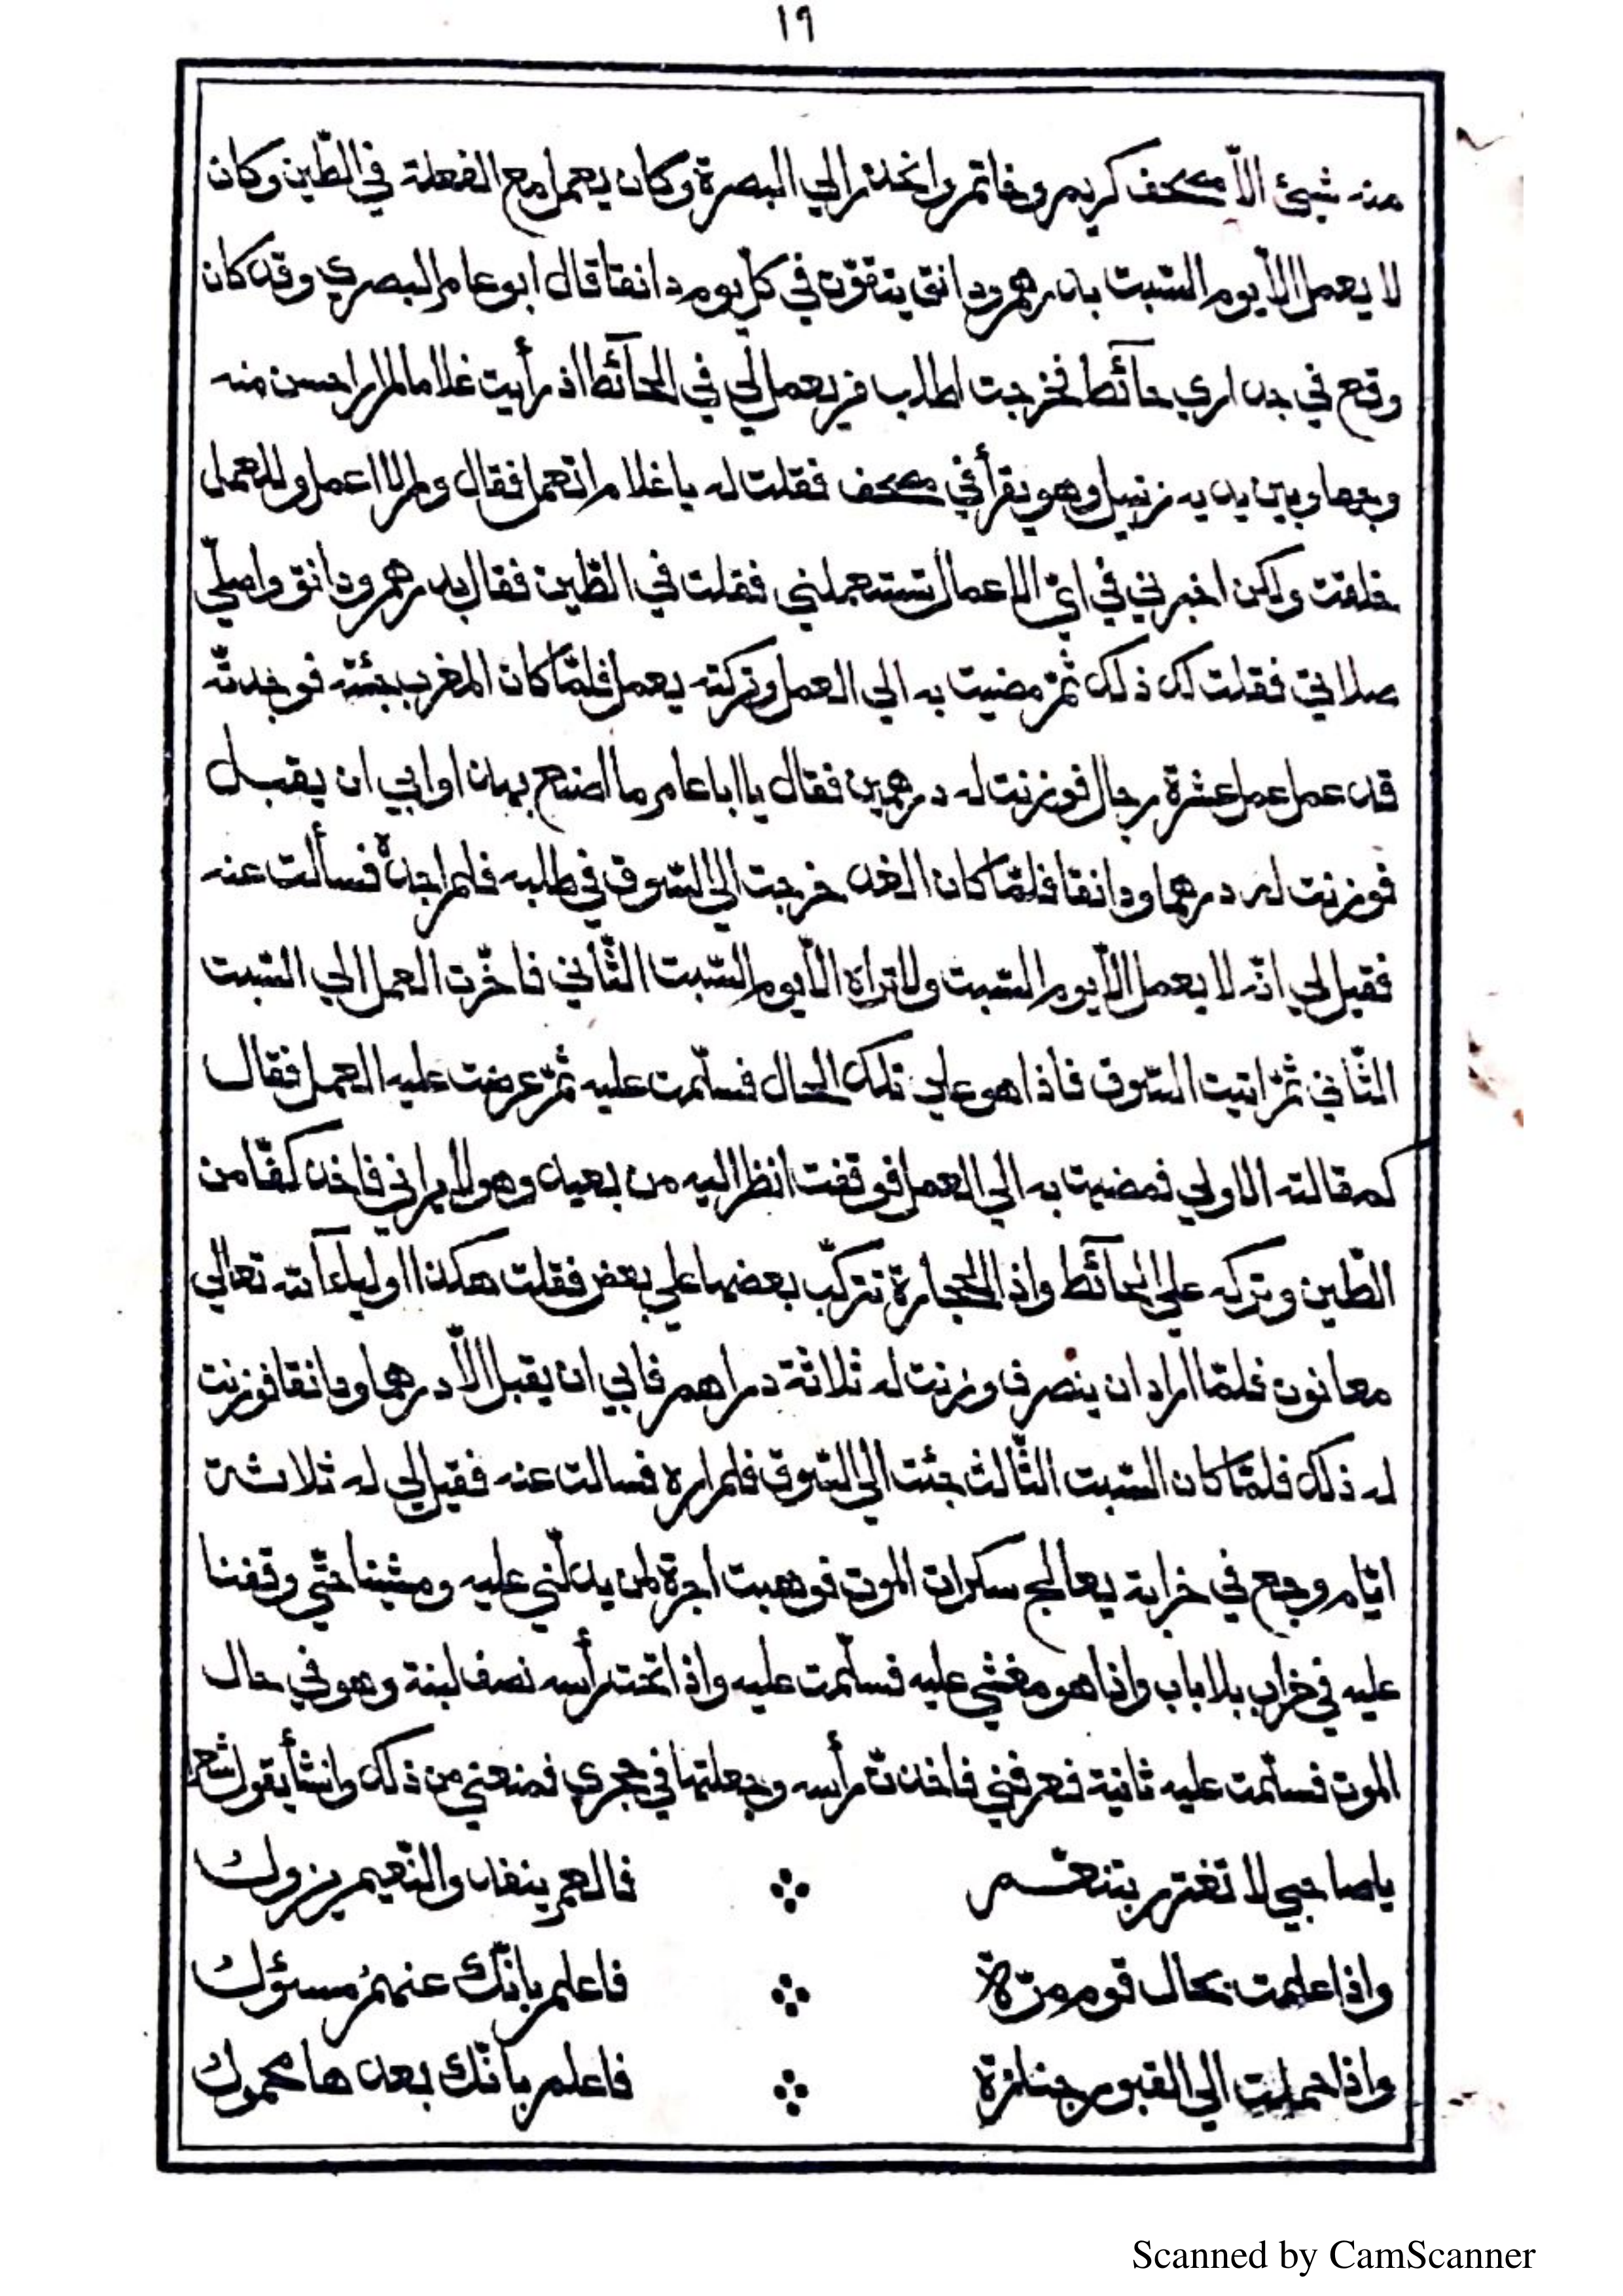 ١٩
منه شيئ الّا مصحف كريم وخاتم وانحدر الي البصرة وكان يعمل مع الفعلة في الطّين وكان
لا يعمل الّا يوم السّبت بدرهم ودانق يتقوّت في كلّ يوم دانقا قال ابو عامر البصري وقد كان
وقع في جداري حآئط فخرجت اطلب من يعمل لي في الحآئط اذ رأيت غلاما لم ار احسن منه
وجها وبين يديه زنبيل وهو يقرأ في مصحف فقلت له يا غلام اتعمل فقال ولم لا اعمل وللعمل
خلقت ولكن اخبرني في ايّ الاعمال تستعملني فقلت في الطّين فقال بدرهم ودانق واصلّي
صلاتي فقلت لك ذلك ثمّ مضيت به الي العمل وتركته يعمل فلمّا كان المغرب جئته فوجدته
قد عمل عمل عشرة رجال فوزنت له درهمين فقال يا ابا عامر ما اصنع بهذا وابي ان يقبل
فوزنت له درهما ودانقا فلمّا كان الغد خرجت الي السّوق في طلبه فلم اجده فسألت عنه
فقيل لي انّه لا يعمل الّا يوم السّبت ولا تراه الّا يوم السّبت الثّاني فاخّرت العمل الي السّبت
الثّاني ثمّ اتيت السّوق فاذا هو علي تلك الحال فسلّمت عليه ثمّ عرضت عليه العمل فقال
كمقالته الاولي فمضيت به الي العمل فوقفت انظر اليه من بعيد وهو لا يراني فاخذ كفّا من
الطّين وتركه علي الحآئط واذا الحجارة تتركّب بعضها علي بعض فقلت هكذا اوليآء الله تعالي
معانون فلمّا اراد ان ينصرف وزنت له ثلاثة دراهم فابي ان يقبل الّا درهما ودانقا فوزنت
له ذلك فلمّا كان السّبت الثّالث جئت الي السّوق فلم اره فسالت عنه فقيل لي له ثلاثة
ايّام وجع في خرابة يعالج سكرات الموت فوهبت اجرة لمن يدلّني عليه ومشينا حتّي وقفنا
عليه في خراب بلا باب واذا هو مغشي عليه فسلّمت عليه واذا تحت رأسه نصف لبنة وهو في حال
الموت فسلّمت عليه ثانية فعرفني فاخذت رأسه وجعلتها في حجري فمنعني من ذلك وانشأ يقول شعر
يا صاحبي لا تغترر بتنعّم ∴ فالعمر ينفد والنّعيم يزول
واذا علمت بحال قوم مرّة ∴ فاعلم بانّك عنهم مسئول
واذا حملت الي القبور جنازة ∴ فاعلم بانّك بعدها محمول
Scanned by CamScanner